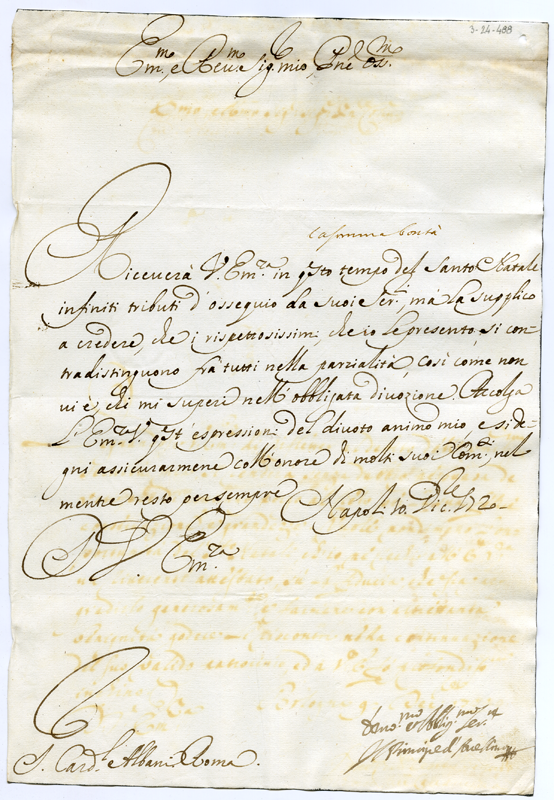 3-24-488
Em.mo e Rev.mo Sig. mio, Pne Oss.mo
la somma bontà
Riceverà V. Em.za in q.sto tempo del Santo Natale
infiniti tributi d'ossequio da suoi Ser.i, mà La supplico
a credere, che i rispettosissimi che io le presento, si con-
tradistinguono frà tutti nella parzialità, così come non
vi è, chi mi superi nell'obbligata divozione. Accolga
L'Em.za V. q.ste espressioni del divoto animo mio, e si de-
gni assicurarmene coll'onore di molti suoi Com.i nel
mentre resto per sempre Napoli 10. Dic.le
D. V. Em.za
S. Card.l Albani Roma.
Devo.mo et Obblig.mo Ser.
Il Principe d'